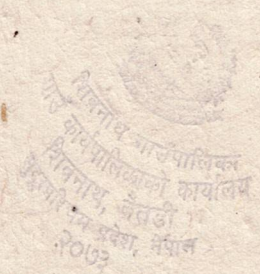 शिवनाथ गाउँपालिका
गाउँ कार्यपालिकाको कार्यालय
शिवनाथ, बैतडी
प्रदेश, नेपाल
२०७३